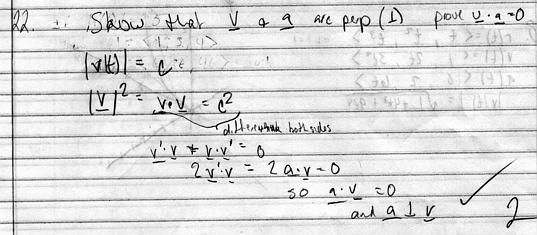 22. Show that v & a are perp (⊥) prove v · a = 0
|v(t)| = c
|v|² = v · v = c²
differentiate both sides
v' · v + v · v' = 0
2 v' · v = 2 a · v = 0
so a · v = 0
and a ⊥ v ✓
2